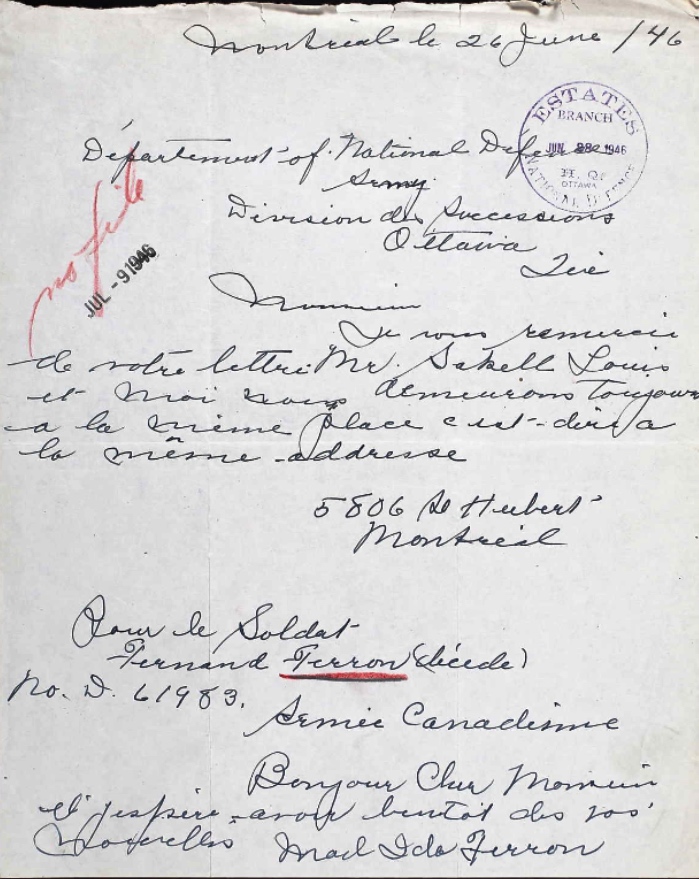 Montréal le 26 June /46
ESTATES
BRANCH
JUN 28 1946
H. Q.
OTTAWA
NATIONAL DEFENCE
Département of National Defense
Army
Division des Successions
Ottawa
no file
JUL - 9 1946
Monsieur
Je vous remercie
de votre lettre Mr. Sakell Louis
et moi nous demeurons toujours
a la même place c'est-dire a
la même addresse
5806 St Hubert
Montreal
Pour le Soldat
Fernand Ferron (décédé)
No. D. 61983.
Armée Canadienne
Bonjour Cher Monsieur
et j'espère avoir bientôt des vos
nouvelles Mad Ida Ferron